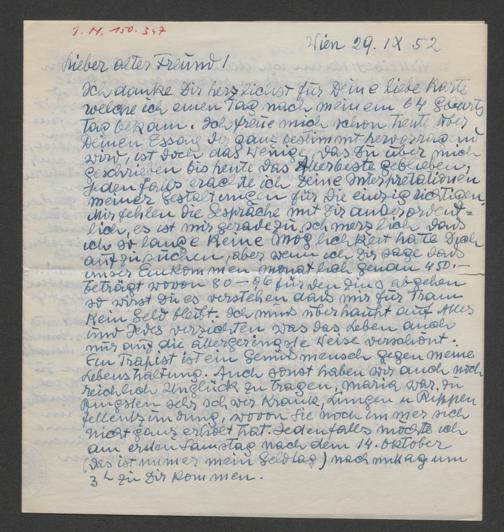 J. N. 150.347
Wien 29. IX 52
Lieber alter Freund!
Ich danke Dir herzlichst für Deine liebe Karte
welche ich einen Tag nach meinem 64 Geburts
tag bekam. Ich freue mich schon heute über
Deinen Essay der ganz bestimmt hervorragend
wird, ist doch das Wenige das Du über mich
geschrieben bis heute das Allerbeste geblieben,
jedenfalls erachte ich Deine Interpretationen
meiner Gestaltungen für die einzig richtigen.
Mir fehlen die Gespräche mit Dir außerordent=
lich, es ist mir geradezu schmerzlich dass
ich so lange keine Möglichkeit hatte Dich
aufzusuchen, aber wenn ich Dir sage dass
unser Einkommen monatlich genau 450.—
beträgt wovon 80 – 96 für den Zins abgehen
so wirst Du es verstehen dass mir für Tram
kein Geld bleibt. Ich muss überhaupt auf Alles
und Jedes verzichten was das Leben auch
nur auf die allergeringste Weise verschönt.
Ein Trapist ist ein Genussmensch gegen meine
Lebenshaltung. Auch sonst haben wir auch noch
reichlich Unglück zu tragen, Maria war zu
Pfingsten sehr schwer krank, Lungen u Rippen
fellentzündung, wovon sie noch immer sich
nicht ganz erholt hat. Jedenfalls möchte ich
am ersten Samstag nach dem 14. Oktober
(das ist immer mein Geldtag) nachmittag um
3h zu Dir kommen.